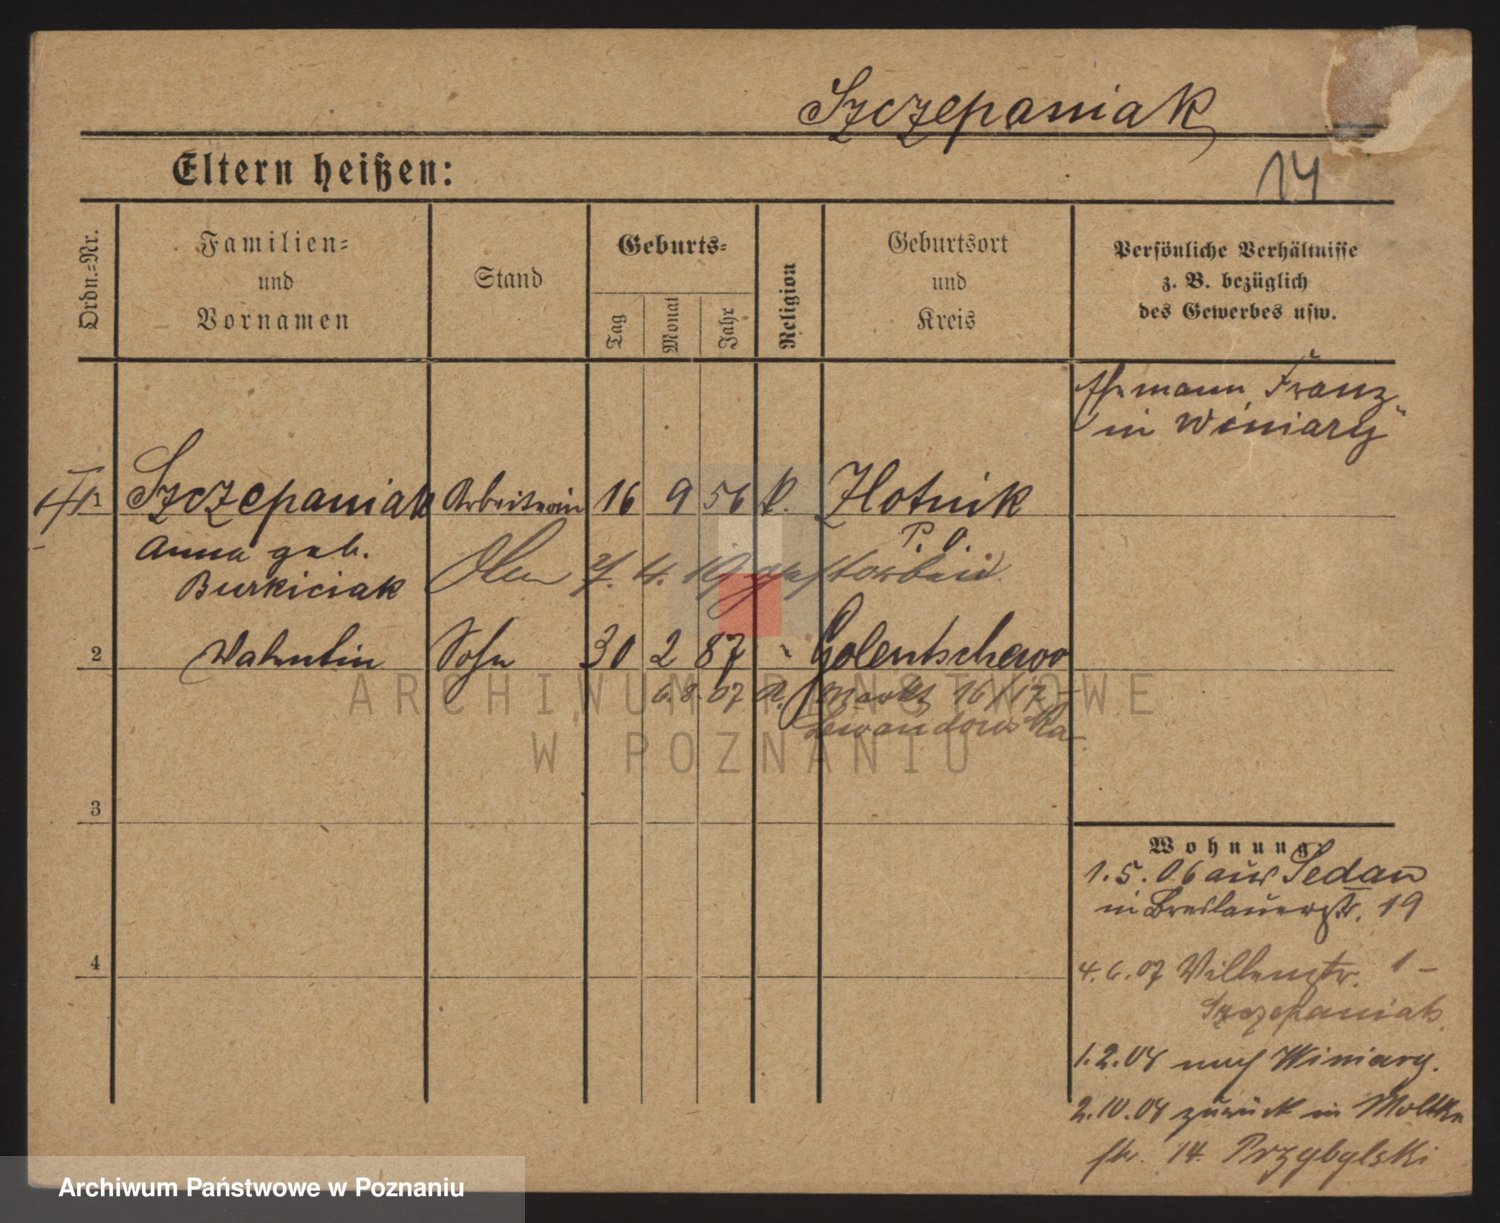 Szczepaniak
Eltern heißen:
14
Ordn.=Nr.
Familien=
und
Vornamen
Stand
Geburts=
Tag
Monat
Jahr
Religion
Geburtsort
und
Kreis
Persönliche Verhältnisse
z. B. bezüglich
des Gewerbes usw.
Ehemann "Franz"
in Winiary
1 Szczepaniak Arbeiterin 16 9 56 k. Zlotnik
P. O.
Anna geb.
Burkiciak
4. 19 gestorben.
2 Valentin Sohn 30 2 87 " Golentschewo
6.8.07 A. Markt 16/17 -
Lewandowska
3
4
Wohnung
1.5.06 aus Sedan
in Breslauerstr. 19
4.6.07 Villenstr. 1 -
Szczepaniak
1.2.08 nach Winiary.
2.10.08 zurück in Moltke
str. 14 Przybylski
ARCHIWUM PAŃSTWOWE
W POZNANIU
Archiwum Państwowe w Poznaniu